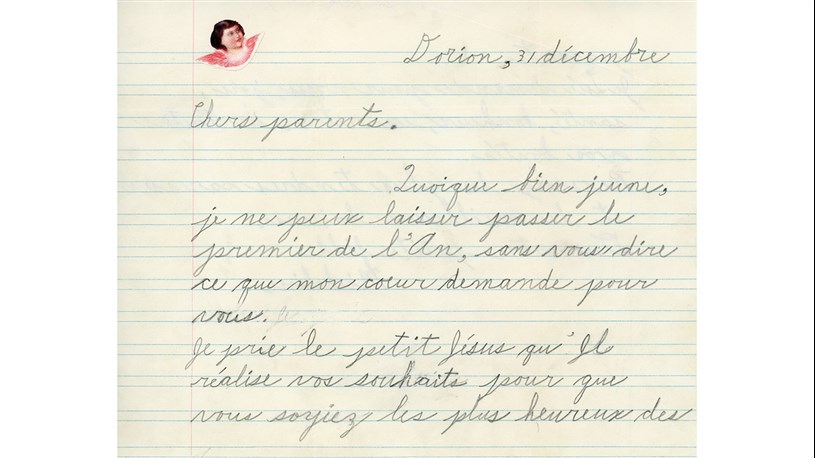 Dorion, 31 décembre
Chers parents.
Quoique bien jeune,
je ne peux laisser passer le
premier de l'An, sans vous dire
ce que mon coeur demande pour
vous.
Je prie le petit Jésus qu'Il
réalise vos souhaits pour que
vous soyiez les plus heureux des